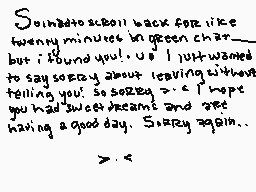 So i had to scroll back for like
twenty minutes in green chat
but i found you!. uu I just wanted
to say sorry about leaving without
telling you! so sorry >.< I hope
you had sweet dreams and are
having a good day. Sorry again..
>.<